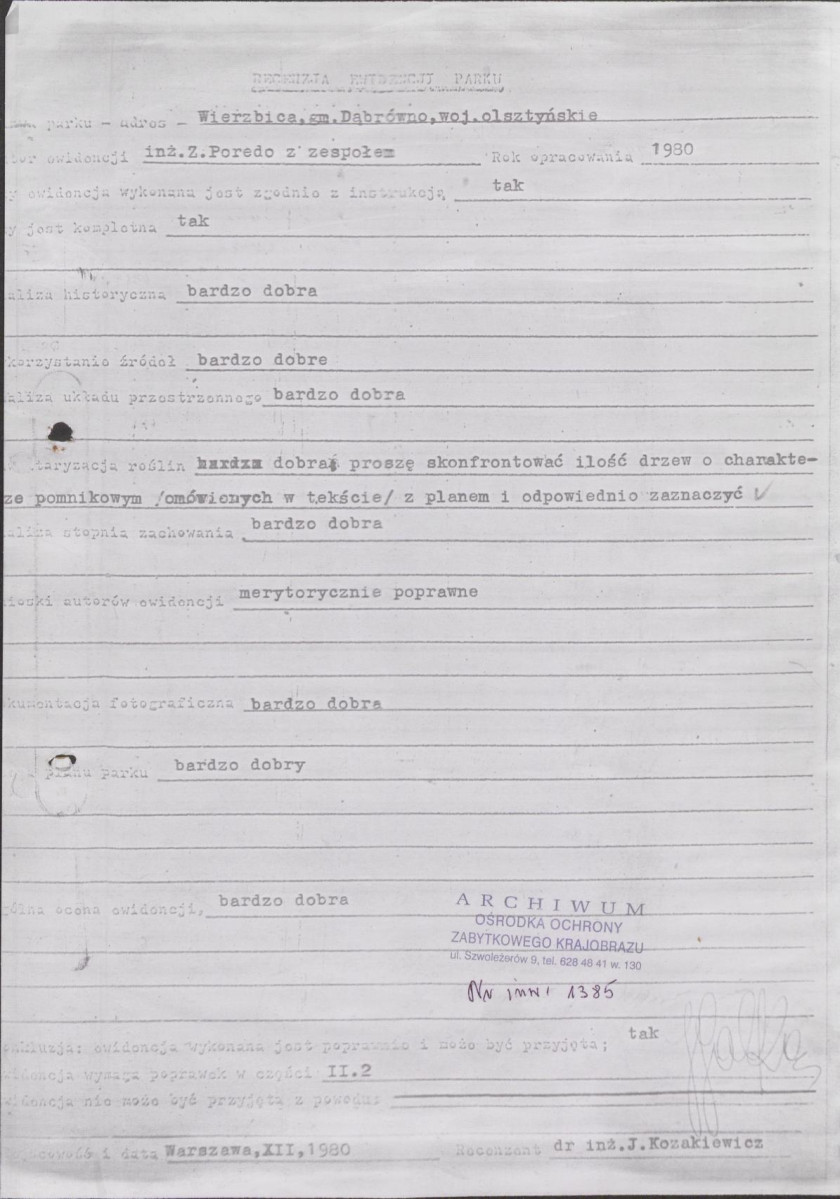 RECENZJA EWIDENCJI PARKU
parku - adres - Wierzbica,gm.Dąbrówno,woj.olsztyńskie
ewidencji inż.Z.Poredo z zespołem Rok opracowania 1980
ewidencja wykonana jest zgodnie z instrukcją tak
y jest kompletna tak
aliza historyczna bardzo dobra
korzystanie źródeł bardzo dobre
aliza układu przestrzennego bardzo dobra
taryzacja roślin bardzo dobra proszę skonfrontować ilość drzew o charakte-
ze pomnikowym /omówionych w tekście/ z planem i odpowiednio zaznaczyć
aliza stopnia zachowania bardzo dobra
ioski autorów ewidencji merytorycznie poprawne
kumentacja fotograficzna bardzo dobra
planu parku bardzo dobry
gólna ocena ewidencji, bardzo dobra
ARCHIWUM
OŚRODKA OCHRONY
ZABYTKOWEGO KRAJOBRAZU
ul. Szwoleżerów 9, tel. 628 48 41 w. 130
Nr inw. 1385
onkluzja: ewidencja wykonana jest poprawnie i może być przyjęta; tak
widencja wymaga poprawek w części II.2
widencja nie może być przyjęta z powodu:
i data Warszawa,XII,1980 Recenzent dr inż.J.Kozakiewicz